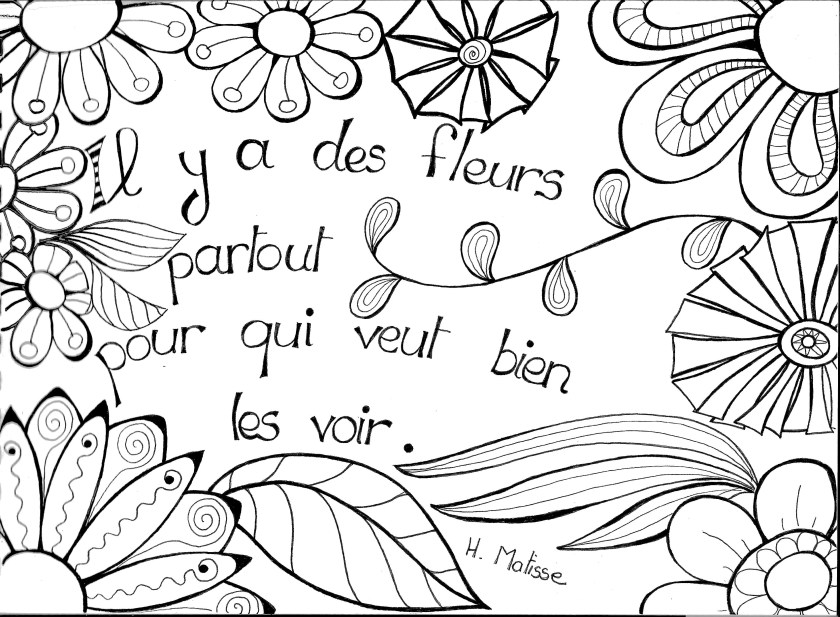 Il y a des fleurs
partout
pour qui veut bien
les voir.
H. Matisse